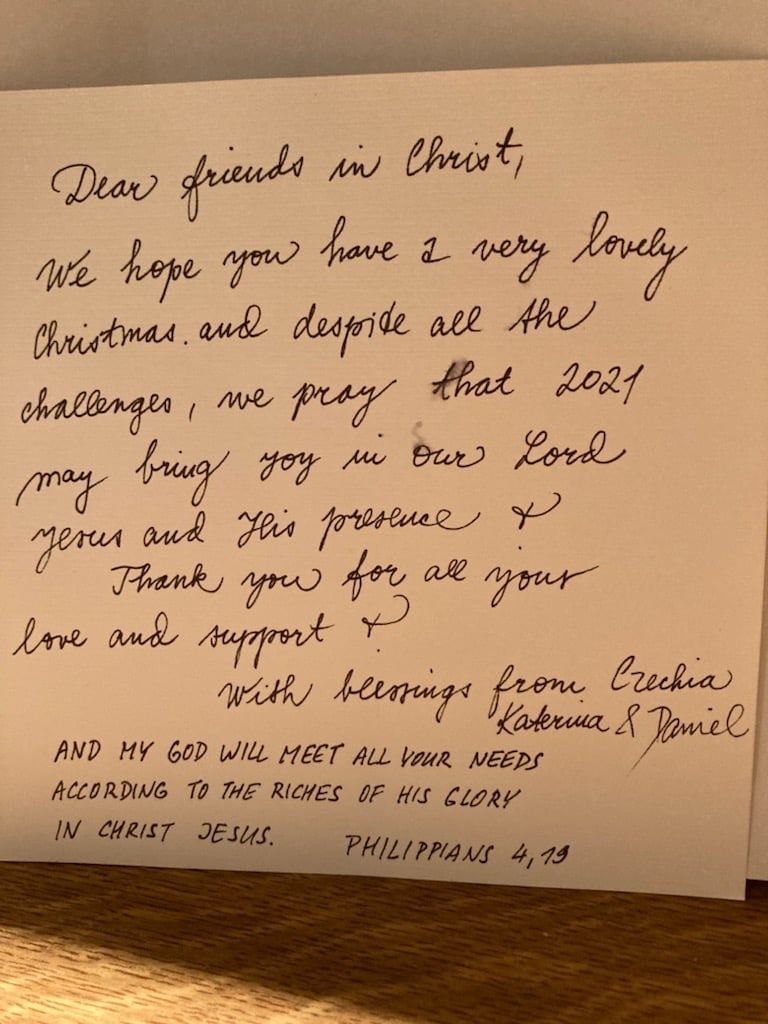 Dear friends in Christ,
We hope you have a very lovely
Christmas. and despite all the
challenges, we pray that 2021
may bring yoy in our Lord
Jesus and His presence &
Thank you for all your
love and support &
With blessings from Czechia
Katerina & Daniel
AND MY GOD WILL MEET ALL YOUR NEEDS
ACCORDING TO THE RICHES OF HIS GLORY
IN CHRIST JESUS. PHILIPPIANS 4,19